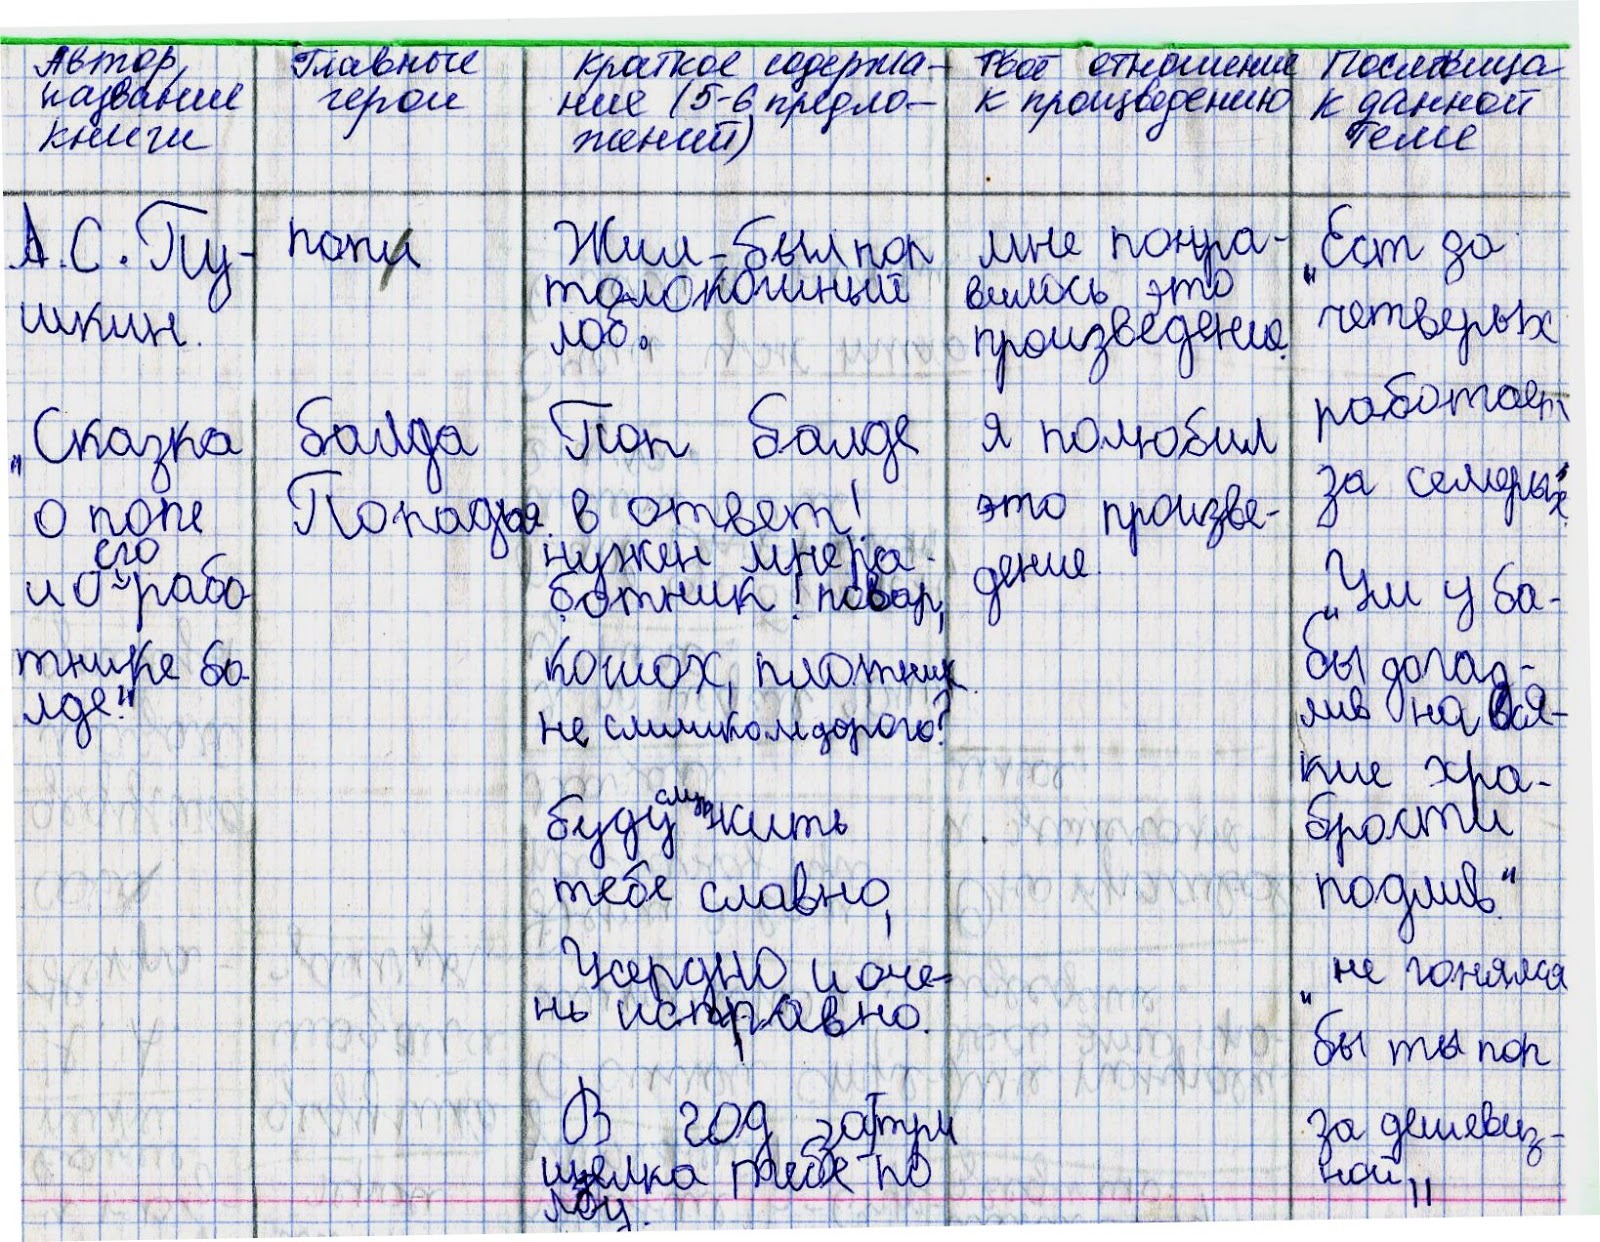 Автор,
название
книги
Главные
герои
Краткое содержа-
ние (5-6 предло-
жений)
Твоё отношение
к произведению
Пословица
к данной
теме
А.С. Пу-
шкин.
„Сказка
о попе
его
и о рабо
тнике ба-
лде."
попы
балда
Попадья.
Жил-был поп
толоконный
лоб.
Поп балде
в ответ!
нужен мне ра-
ботник! повар,
конюх, плотник
не слишком дорого?
служ
буду жить
тебе славно,
Усердно и оче-
нь исправно.
В год за три
щелка тебе по
лбу.
мне понра-
вилось это
произведение.
я полюбил
это произве-
дение.
„Ест за
четверых
работает
за семерых"
„Ум у ба-
бы догад-
лив на вся-
кие хра-
брости
подлив."
„не гонялся
бы ты поп
за дешевиз-
ной"